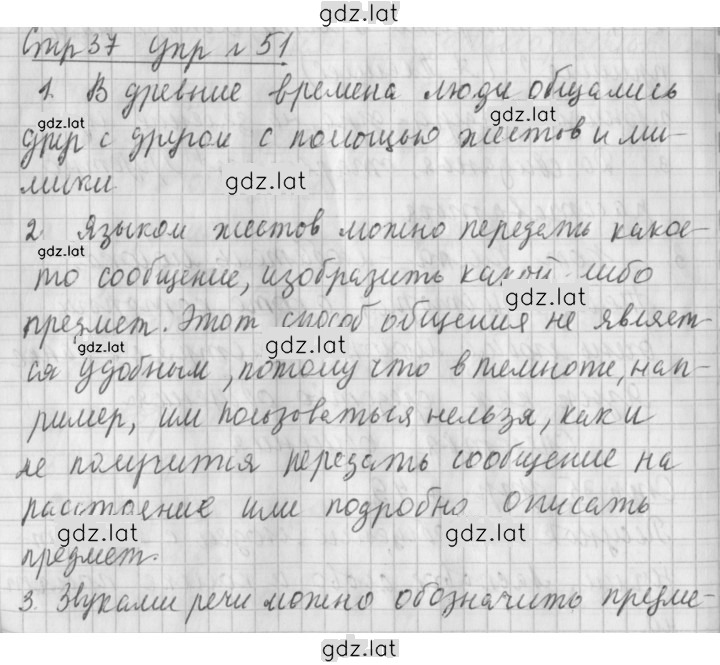 gdz.lat
Стр 37 упр № 51
1. В древние времена люди общались
gdz.lat
друг с другом с помощью жестов и ми-
мики
gdz.lat
2. Языком жестов можно передать какое-
gdz.lat
то сообщение, изобразить какой-либо
gdz.lat
предмет. Этот способ общения не являет-
gdz.lat gdz.lat
ся удобным, потому что в темноте, нап-
ример, им пользоваться нельзя, как и
не получится передать сообщение на
расстояние или подробно описать
gdz.lat gdz.lat
предмет.
3. Звуками речи можно обозначить предме-
gdz.lat